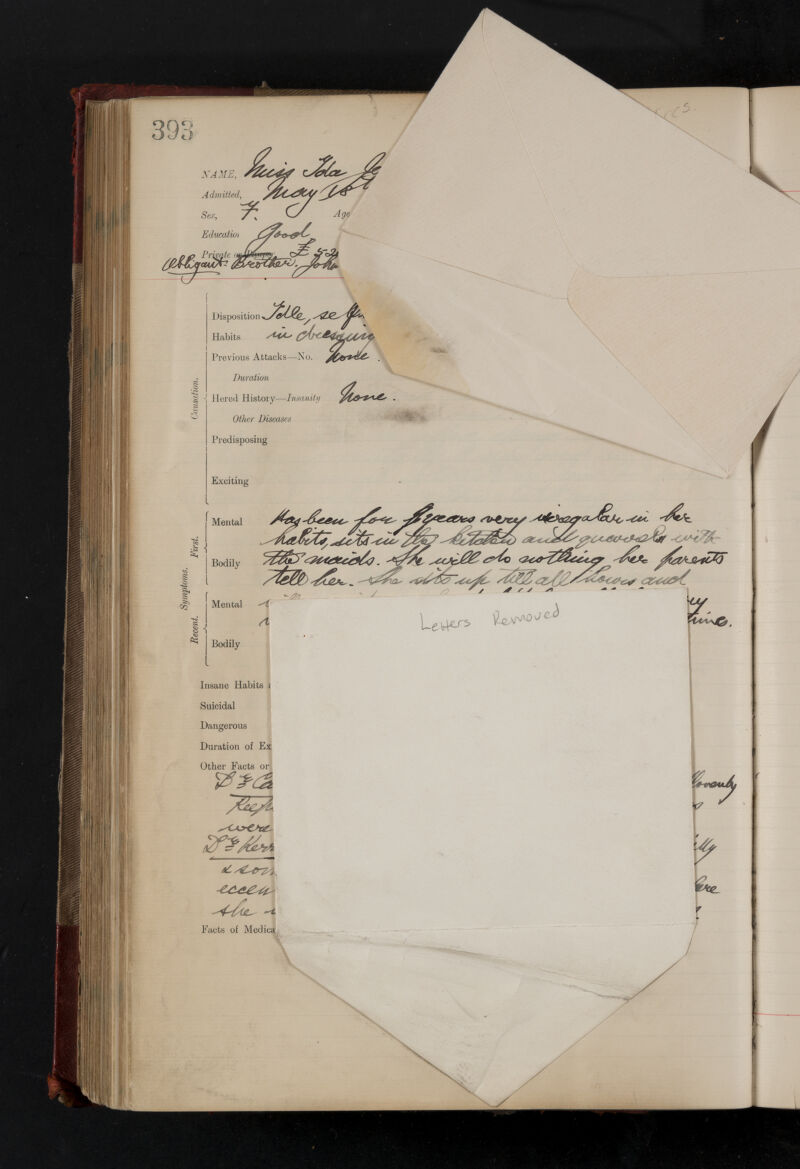 393
NAME, Miss Ida
Admitted, May 18
Sex, F. Age
Education Good
Private or Pauper £52
Obligant: Brother. John
Causation.
Disposition Idle, selfi
Habits in dressing
Previous Attacks—No. None.
Duration
Hered History—Insanity None.
Other Diseases
Predisposing
Exciting
Symptoms.
First.
Mental Has been for years very irregular in her
habits, sits in the kitchen and quarrels with
Bodily the maids. She will do nothing her parents
tell her. She sits up till all hours and
Recent.
Mental
time.
Bodily
Letters Removed
Insane Habits
Suicidal
Dangerous
Duration of Ex
Other Facts or
Dr. Ca
Keep
were
Dr. Kerr
& son
eccen
she
Facts of Medica